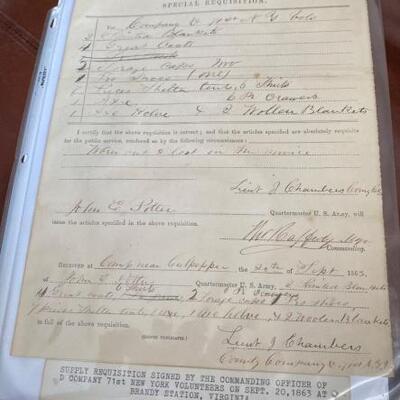 SPECIAL REQUISITION.
For Company D 71st N Y Vols
2 Blankets
4 Great Coats
2 Forage Caps
Pr Shoes
6 Pieces Shelter Tents 6 Shirts
1 Axe 6 Pr Drawers
1 Axe Helve & 2 Wollen Blankets
I certify that the above requisition is correct; and that the articles specified are absolutely requisite
for the public service, rendered so by the following circumstances:
Worn out & lost in the service
Lieut J Chambers Comg Co
John E. Potter Quartermaster U. S. Army, will
issue the articles specified in the above requisition.
Commanding.
RECEIVED at Camp near Culpepper the 20th of Sept 1863,
of John E. Potter Quartermaster U. S. Army, 2 Blankets
4 Great Coats, 2 Forage Caps Pr Shoes,
Shelter Tents, 1 axe, 1 axe helve, & 2 Woolen Blankets
in full of the above requisition.
(SIGNED DUPLICATES.)
Lieut J Chambers
Comg Company D 71st N.Y.
SUPPLY REQUISITION SIGNED BY THE COMMANDING OFFICER OF
D COMPANY 71st NEW YORK VOLUNTEERS ON SEPT. 20,1863 AT
BRANDY STATION, VIRGINIA